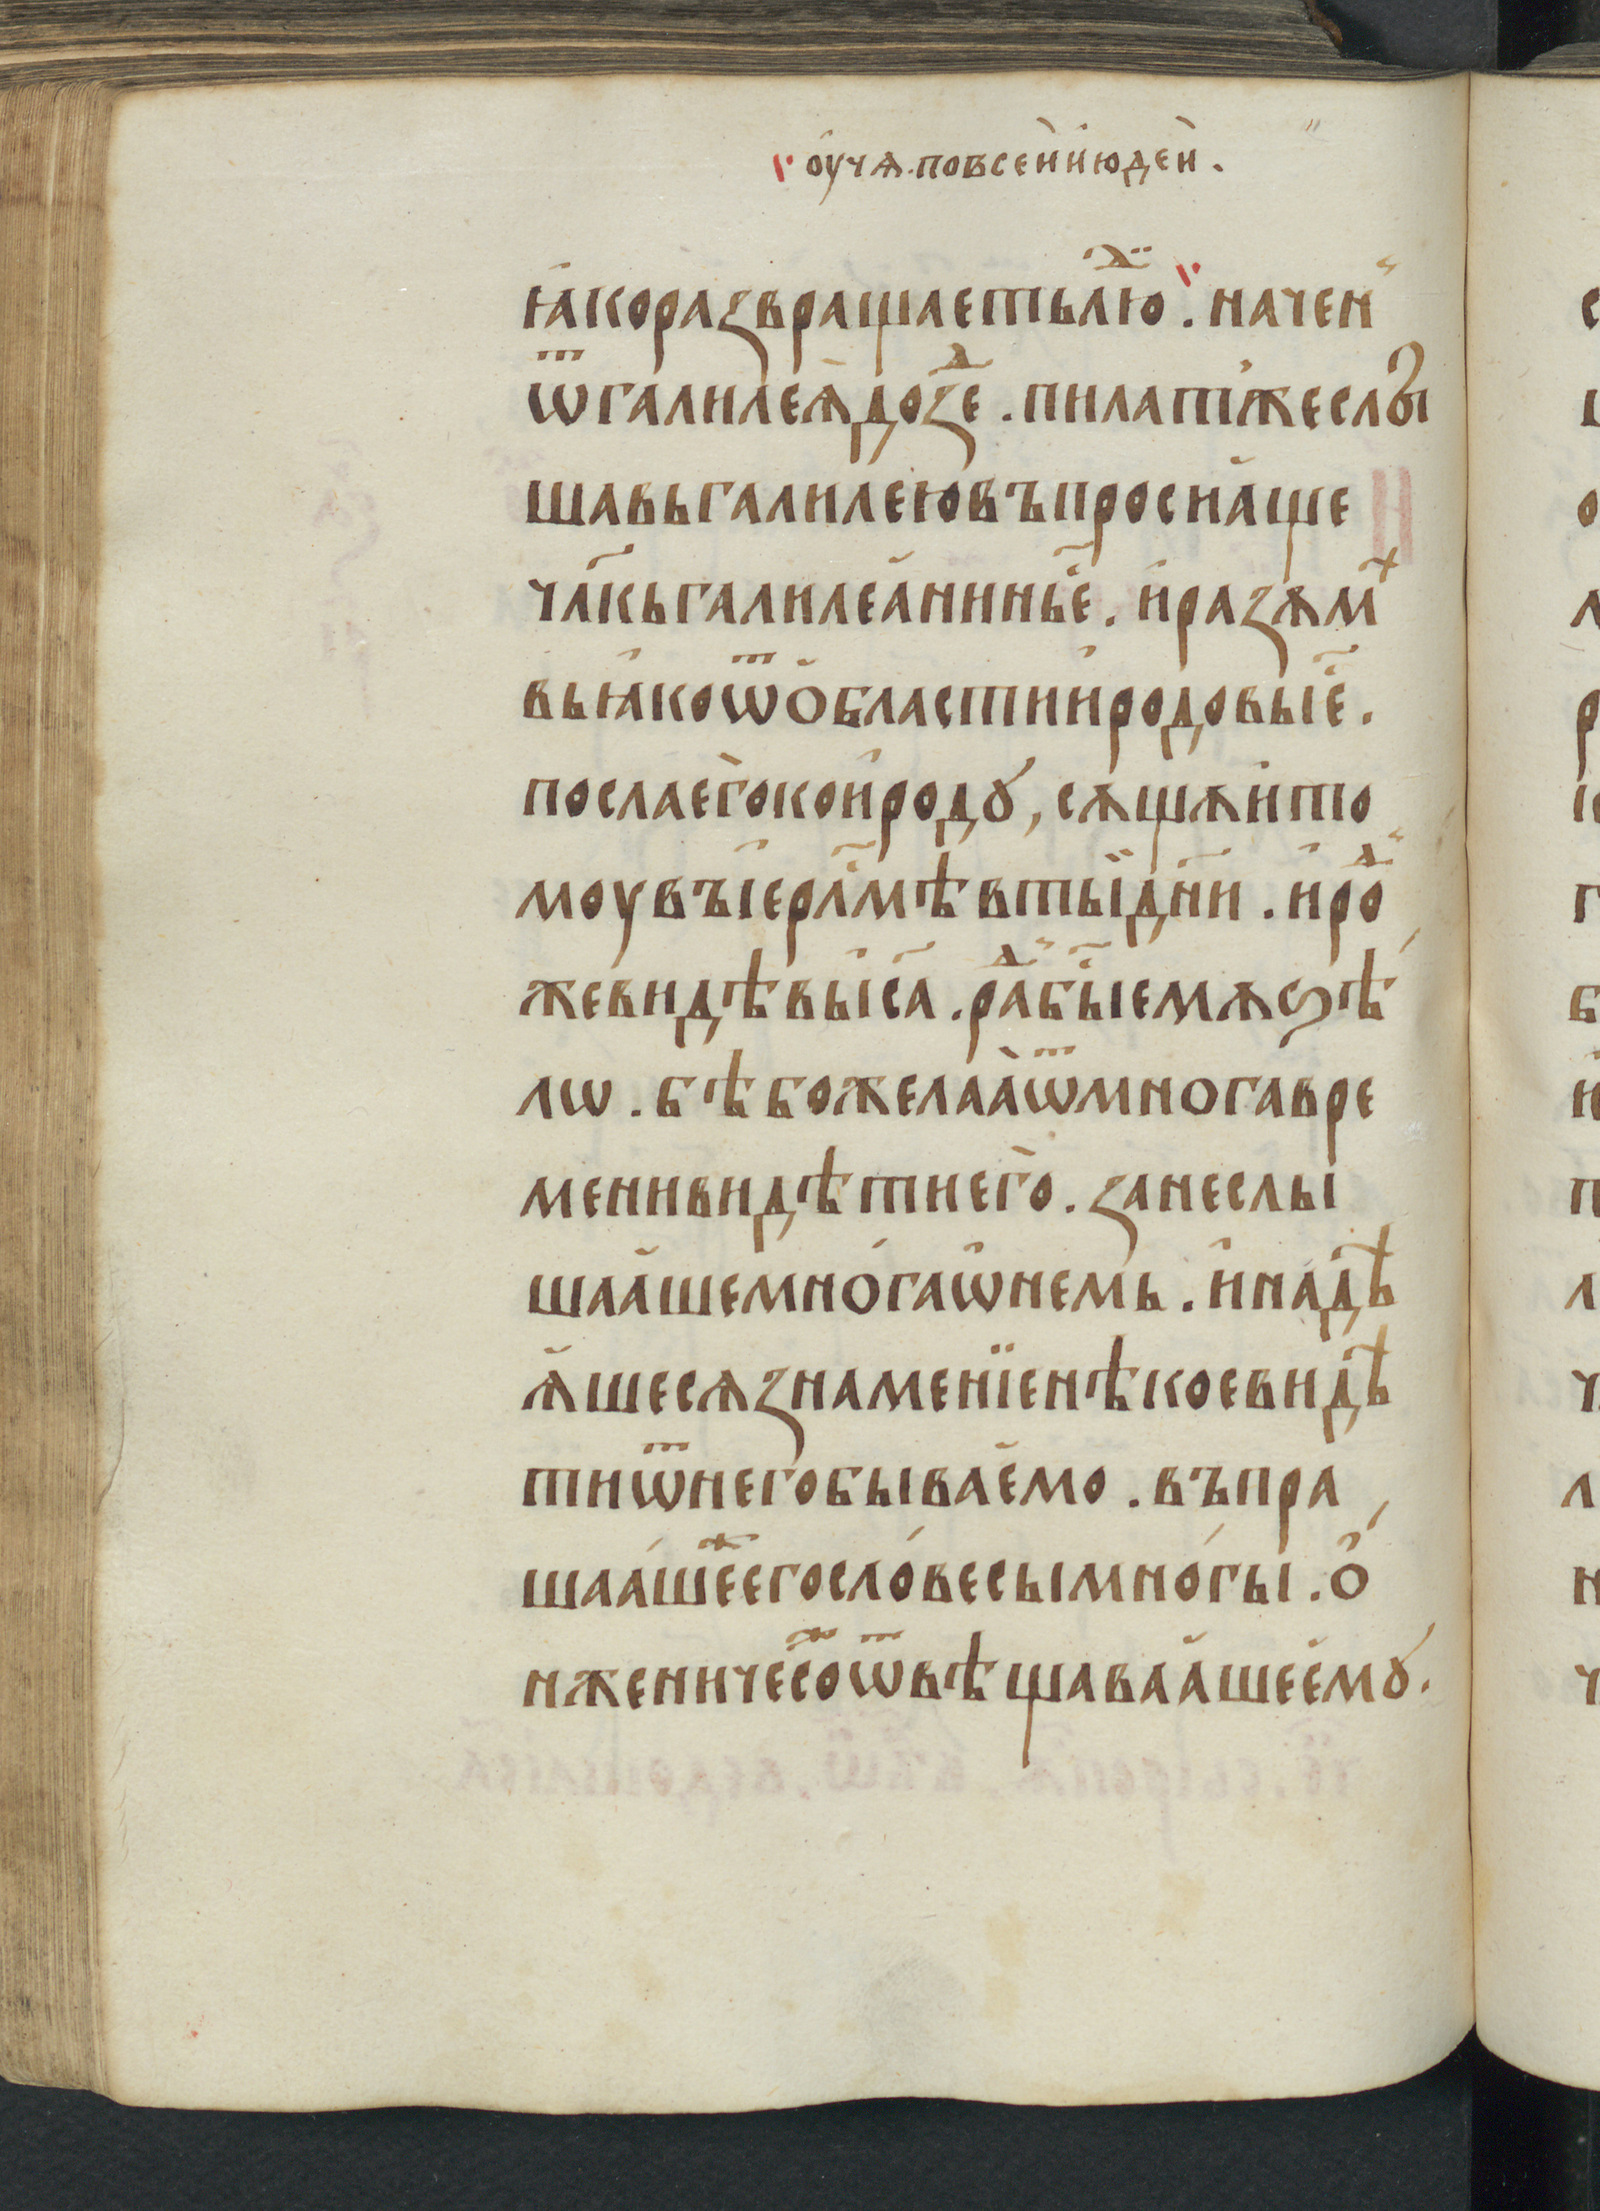 оучѧ. повсеи июдеи.
ꙗкоразвращаетьлюⷣ. начен
ѿгалилеѧдозⷣе. пилатжеслꙑ
шавьгалилеювъпросиаще
члкьгалилеанинье. иразѫмⷯ
вьꙗкоѿобластииродовыіе.
послаегокоиродꙋ, сѫщѫито
моувъіерлмѣвтыідни. ироⷣ
жевидѣвыіса. раⷣбыіемѫѕѣ
лѡ. бѣбожелааѿмногавре
менивидѣтиего. занеслы
шаашемногаѡнемь. инадѣ
ѧшесѧзнаменіенѣкоевидѣ
тиѿнегобываемо. въпра
шаашеⷤегословесымногы. о
нженичесоⷤѿвѣщавaашеемꙋ.